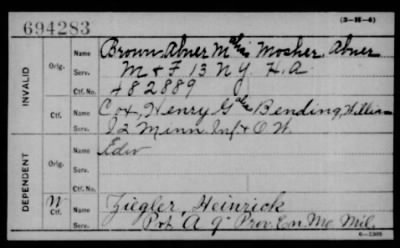 694283
(3-H-4)
INVALID
Orig.
Name Brown, Abner M alias Mosher, Abner
Serv. M & F 13 N.Y. H.A.
Ctf. No. 482889
Ctf.
Name Cox, Henry G alias Bending, William
Serv. I 2 Minn. Inf
DEPENDENT
Orig.
Name Edw
Serv.
W
Ctf.
Name Ziegler, Heinrick
Serv. Pvt. A 9" Prov. En. Mo. Mil.